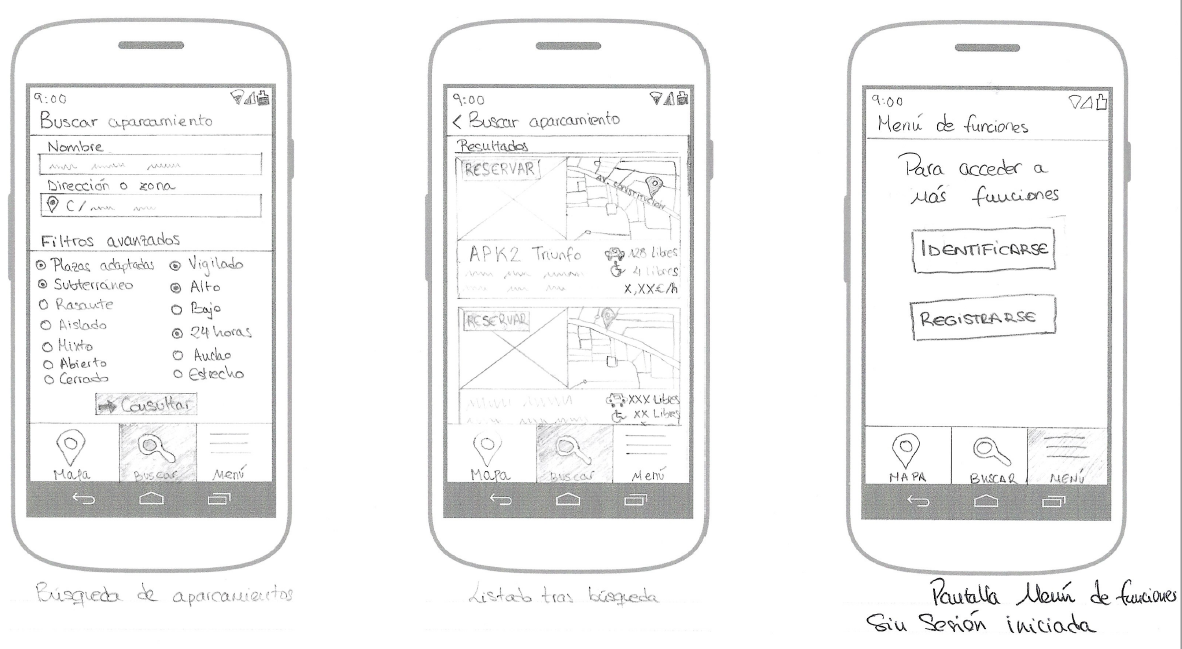 9:00
Buscar aparcamiento
Nombre
Dirección o zona
C/
Filtros avanzados
Plazas adaptadas
Subterráneo
Rasante
Aislado
Mixto
Abierto
Cerrado
Vigilado
Alto
Bajo
24 horas
Ancho
Estrecho
Consultar
Mapa
Buscar
Menú
Búsqueda de aparcamientos
9:00
< Buscar aparcamiento
Resultados
RESERVAR
AV. CONSTITUCIÓN
APK2 Triunfo
128 Libes
4 Libres
x,xx€/h
RESERVAR
XXX Libes
XX Libes
Mapa
Buscar
Menú
Listado tras búsqueda
9:00
Menú de funciones
Para acceder a
más funciones
IDENTIFICARSE
REGISTRARSE
MAPA
BUSCAR
MENÚ
Pantalla Menú de funciones
Sin Sesión iniciada